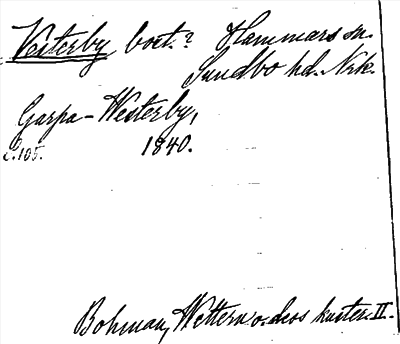 Vesterby bost.? Hammars sn.
Sundbo hd. Nrk.
Garpa-Westerby,
s. 105. 1840.
Bohman, Wettern o. dess kuster. II.